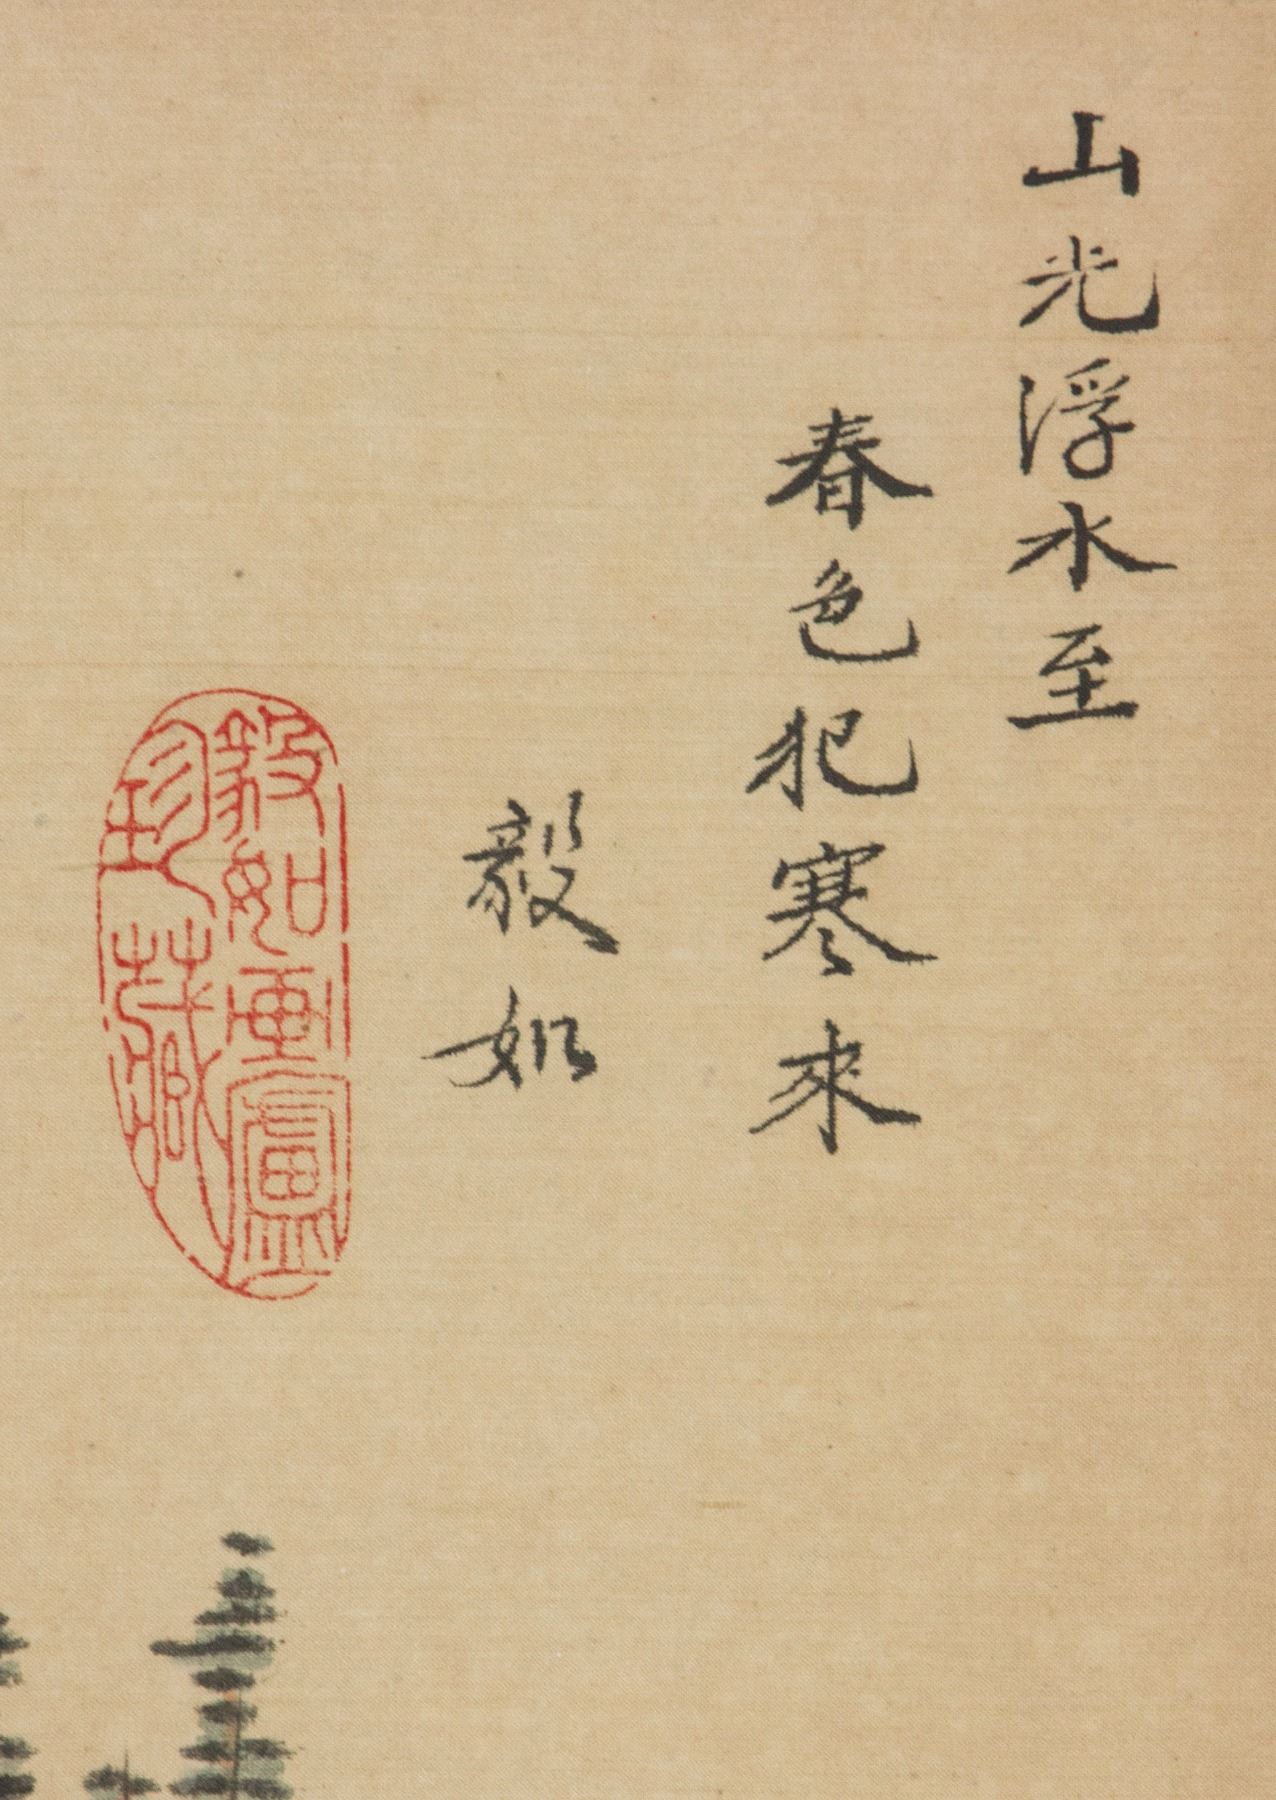 山光浮水至
春色犯寒來
毅如
毅如畫盦
珍藏